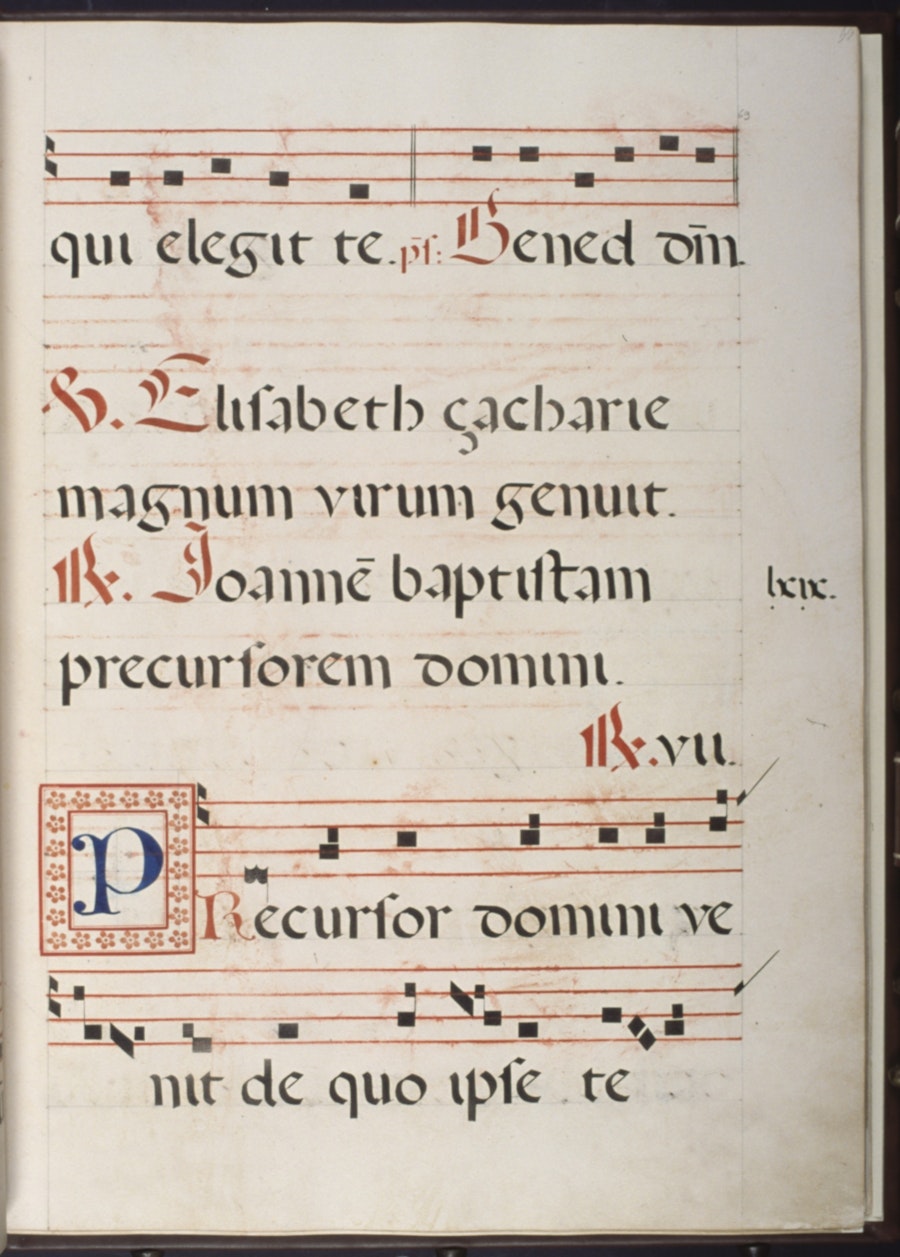 qui elegit te. ps: Bened dn̄m.
V. Elisabeth çacharie
magnum virum genuit.
R. Joannē baptistam
precursorem domini.
lxix.
R. vii.
PRecursor domini ve
nit de quo ipse te